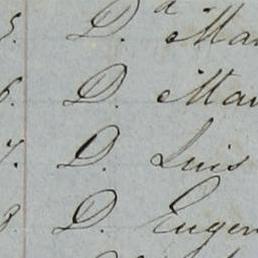 5. D.ª Ma
6. D. Ma
7. D. Luis
8. D. Eugen